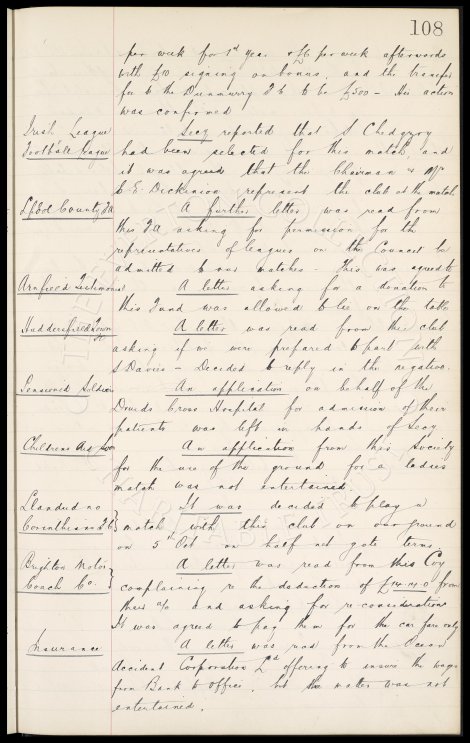 108
per week for 1st year & £6 per week afterwards
with £10 signing on bonus, and the transfer
fee to the Dunmurry F.C. to be £500 - His action
was confirmed
Irish League
Football League
Secy reported that S Chedgzoy
had been selected for this match, and
it was agreed that the Chairman & Mr
C. E. Dickinson represent the club at the match
L.pool County F.A
A further letter was read from
this F.A asking for permission for the
representatives of leagues on the Council be
admitted to our matches. This was agreed to
Arnfield Testimonial
A letter asking for a donation to
this Fund was allowed to lie on the table
Huddersfield Town
A letter was read from this club
asking if we were prepared to part with
S Davies - Decided to reply in the negative.
Pensioned Soldiers
An application on behalf of the
Druids Cross Hospital for admission of their
patients was left in hands of Secy
Childrens Aid Soc
An application from this Society
for the use of the ground for a ladies
match was not entertained.
Llandudno
Corinthians F.C
It was decided to play a
match with this club on our ground
on 5th Oct on half net gate terms
Brighton Motor
Coach Co.
A letter was read from this Coy
complaining re the deduction of £14.14.0 from
their a/c and asking for re-consideration
It was agreed to pay them for the car fare only
Insurance
A letter was read from the Ocean
Accident Corporation Ltd offering to insure the wages
from Bank to Office, but the matter was not
entertained.